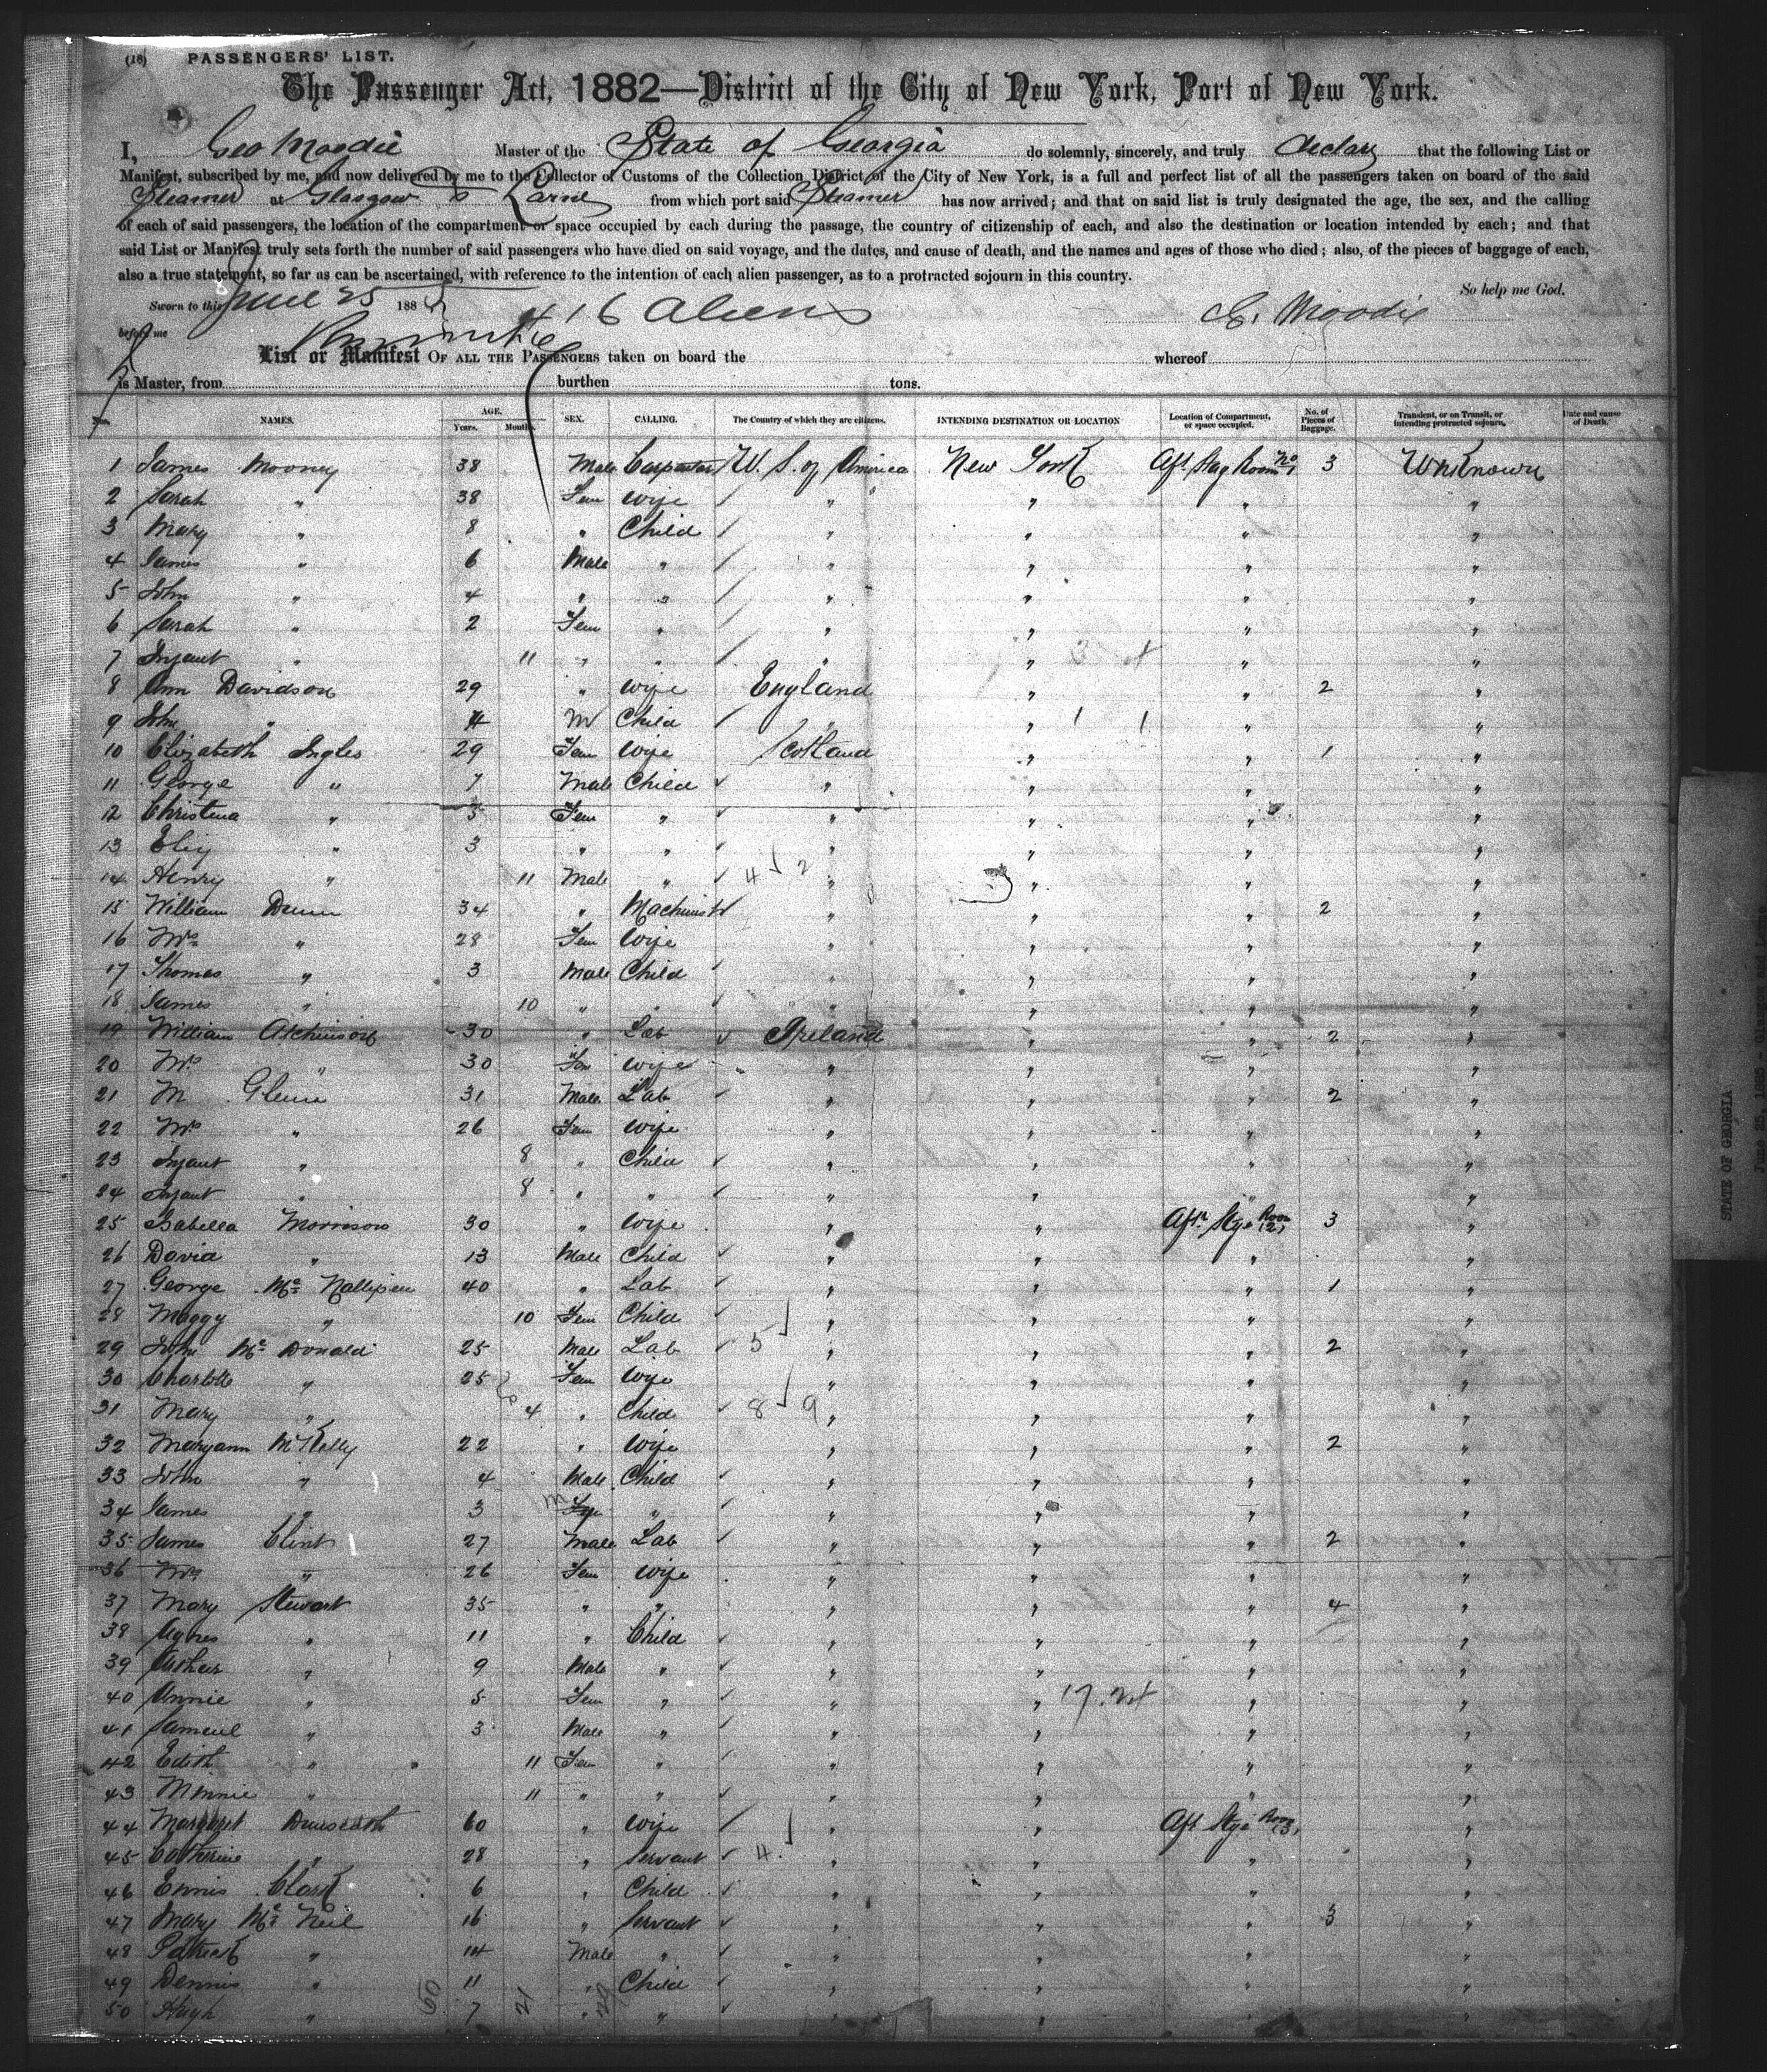 (18) PASSENGERS' LIST.
The Passenger Act, 1882—District of the City of New York, Port of New York.
I, Geo Moodie Master of the State of Georgia do solemnly, sincerely, and truly declare that the following List or
Manifest, subscribed by me, and now delivered by me to the Collector of Customs of the Collection District of the City of New York, is a full and perfect list of all the passengers taken on board of the said
Steamer at Glasgow & Larne from which port said Steamer has now arrived; and that on said list is truly designated the age, the sex, and the calling
of each of said passengers, the location of the compartment or space occupied by each during the passage, the country of citizenship of each, and also the destination or location intended by each; and that
said List or Manifest truly sets forth the number of said passengers who have died on said voyage, and the dates, and cause of death, and the names and ages of those who died; also, of the pieces of baggage of each,
also a true statement, so far as can be ascertained, with reference to the intention of each alien passenger, as to a protracted sojourn in this country.
So help me God.
Sworn to this June 25 1885 416 Aliens G. Moodie
before me
List or Manifest OF ALL THE PASSENGERS taken on board the whereof
is Master, from burthen tons.
Nos. NAMES. AGE. Years. Months. SEX. CALLING. The Country of which they are citizens. INTENDING DESTINATION OR LOCATION Location of Compartment, or space occupied. No. of Pieces of Baggage. Transient, or on Transit, or intending protracted sojourn. Date and cause of Death.
1 James Mooney 38 Male Carpenter U. S. of America New York Aft Stag Room No 1 3 Unknown
2 Sarah " 38 Fem Wife " " " " "
3 Mary " 8 " Child " " " "
4 James " 6 Male " " " " "
5 John " 4 " " " " " "
6 Sarah " 2 Fem " " " " "
7 Infant " 11 " " " " " "
8 Ann Davidson 29 " Wife England " " 2 "
9 John " 4 M Child " " 1 1 " "
10 Elizabeth Ingles 29 Fem Wife Scotland " " 1 "
11 George " 7 Male Child " " " "
12 Christena " 5 Fem " " " " "
13 Eliz " 3 " " " " " "
14 Henry " 11 Male " 4 2 " " " "
15 William Dunn 34 " Machinist " " " 2 "
16 Mrs " 28 Fem Wife " " " "
17 Thomas " 3 Male Child " " " "
18 James " 10 " " " " " "
19 William Atchinson 30 " Lab Ireland " " 2 "
20 Mrs " 30 Fem Wife " " " "
21 M Glenn 31 Male Lab " " " 2 "
22 Mrs " 26 Fem Wife " " " "
23 Infant " 8 " Child " " " "
24 Infant " 8 " " " " " "
25 Isabella Morrison 30 " Wife " " Aft Stge Room (2) 3 "
26 David " 13 Male Child " " " "
27 George Mc 40 " Lab " " " 1 "
28 Maggy " 10 Fem Child " " " "
29 John Mc Donald 25 Male Lab 5 " " " 2 "
30 Charlotte " 25 Fem Wife " " " "
31 Mary " 4 " Child 8 9 " " " "
32 Maryann McKelly 22 " Wife " " " 2 "
33 John " 4 Male Child " " " "
34 James " 3 M " " " " "
35 James Clint 27 Male Lab " " " 2 "
36 Mrs " 26 Fem Wife " " " "
37 Mary Stewart 35 " " " " " 4 "
38 Agnes " 11 " Child " " " "
39 Arthur " 9 Male " " " " "
40 Annie " 5 Fem " " " 17. " "
41 Sameul " 3 Male " " " " "
42 Edith " 11 Fem " " " " "
43 Minnie " 11 " " " " " "
44 Margaret Dunseath 60 " Wife " " Aft Stge Room (3) "
45 Catherine " 28 " Servant 4 " " " "
46 Ennis Clark 6 " Child " " " "
47 Mary Mc Neil 16 " Servant " " " 3 "
48 Patrick " 14 Male " " " " "
49 Dennis " 11 " Child " " " "
50 Hugh " 7 " " " " " "
50 21 29
STATE OF GEORGIA
June 25, 1885 - Glasgow and Larne